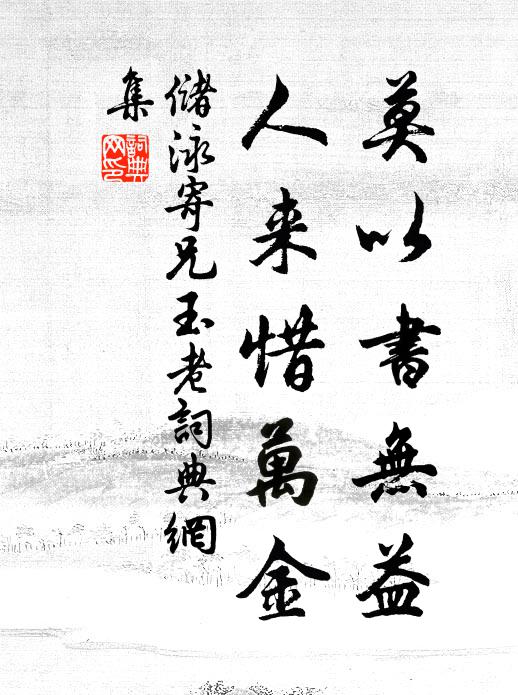 莫以書無益
人来惜萬金
儲泳寄兄玉老詞典網
集
詞典
网印